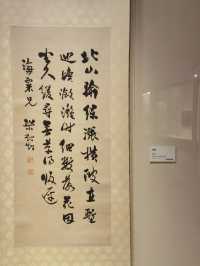 北山輸綠漲橫陂直塹
迴塘灩灩時細數落花因
坐久緩尋芳草得歸遲
海粟兄